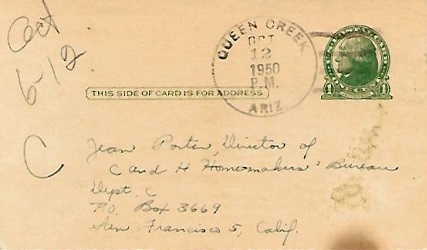 Oct
6-12
QUEEN CREEK
OCT
12
1950
P.M.
ARIZ
THIS SIDE OF CARD IS FOR ADDRESS
1 1
C
Jean Porter, Director of
C and H Homemakers' Bureau
Dept. C
P.O. Box 3669
San Francisco 5, Calif.